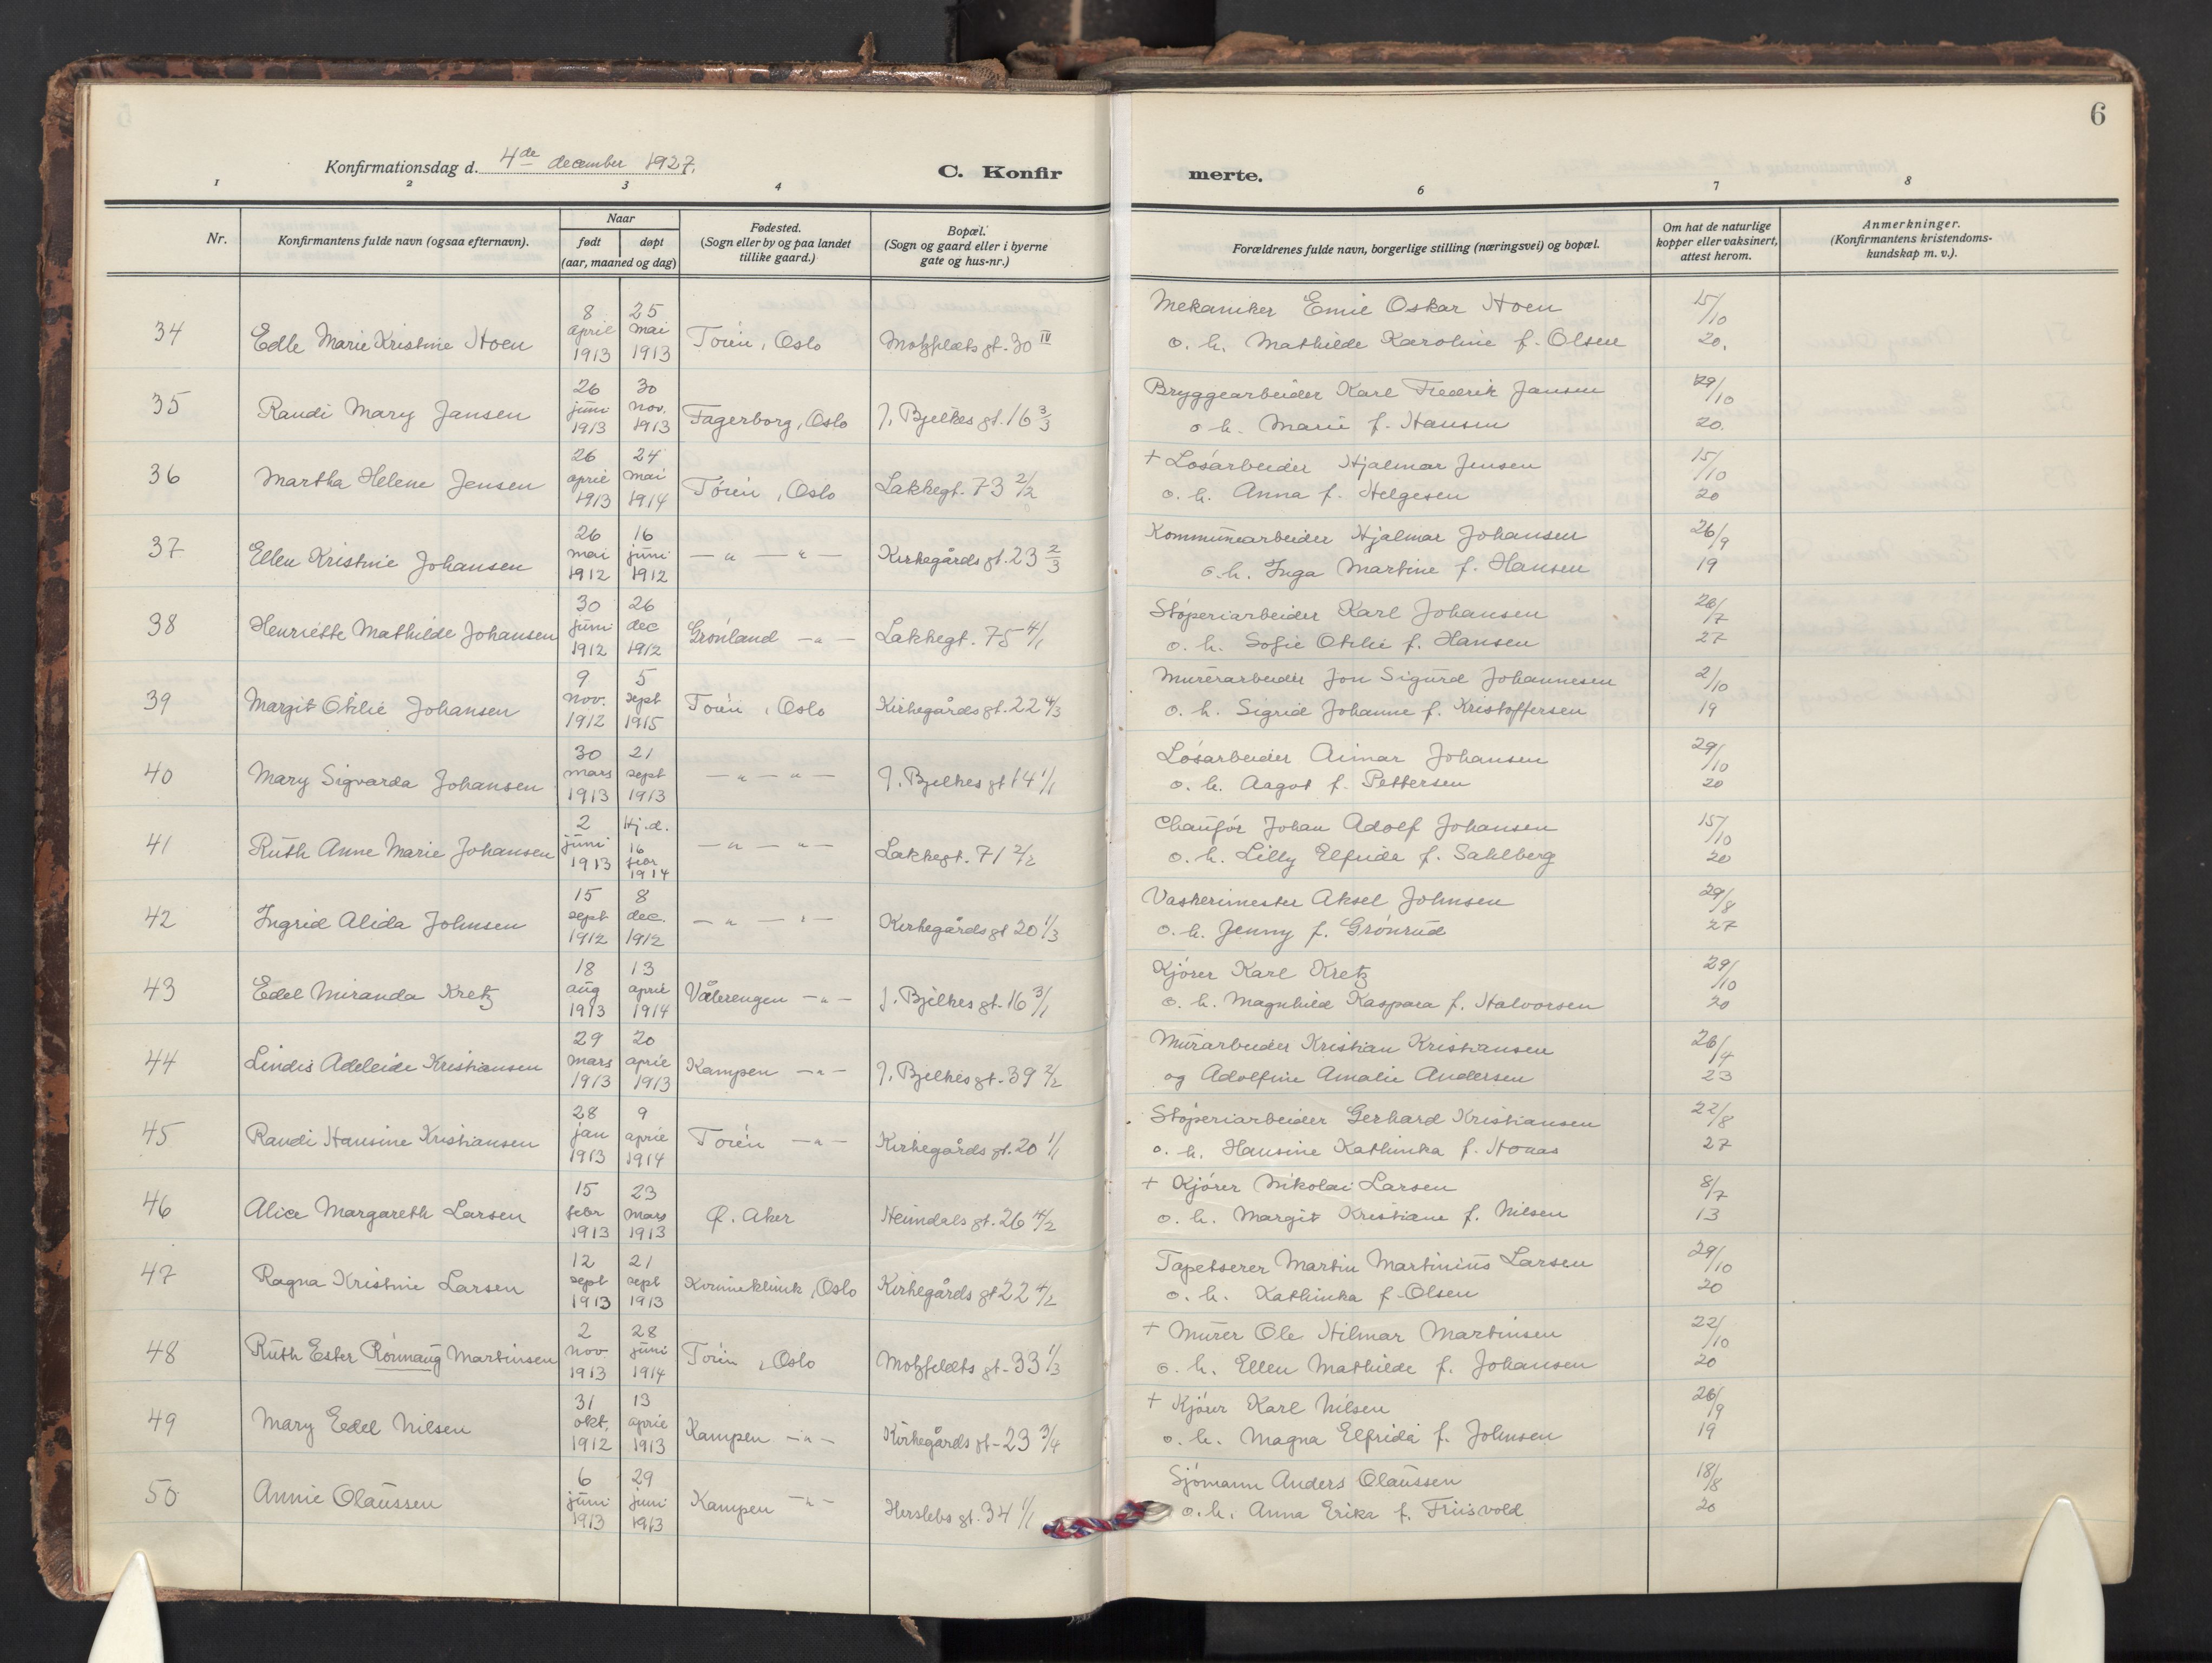 6
Konfirmationsdag d. 4de december 1927.
C. Konfir
merte.
1 2 3 4 6 7 8
Nr.
Konfirmantens fulde navn (ogsaa efternavn).
Naar
født døpt
(aar, maaned og dag)
Fødested.
(Sogn eller by og paa landet
tillike gaard.)
Bopæl.
(Sogn og gaard eller i byerne
gate og hus-nr.)
Forældrenes fulde navn, borgerlige stilling (næringsvei) og bopæl.
Om hat de naturlige
kopper eller vaksinert,
attest herom.
Anmerkninger.
(Konfirmantens kristendoms-
kundskap m. v.).
34 Edle Marie Kristine Hoen
8 april 1913
25 mai 1913
Tøien, Oslo
Motzfeldts gt. 30 IV
Mekaniker Emil Oskar Hoen
o. h. Mathilde Karoline f. Olsen
15/10 20.
35 Randi Mary Jansen
26 juni 1913
30 nov. 1913
Fagerborg, Oslo
J. Bjelkes gt. 16 3/3
Bryggearbeider Karl Fredrik Jansen
o h. Marie f. Hansen
29/10 20.
36 Martha Helene Jensen
26 april 1913
24 mai 1914
Tøien, Oslo
Lakkegt. 73 2/2
+ Løsarbeider Hjalmar Jensen
o. h. Anna f. Helgesen
15/10 20
37 Ellen Kristine Johansen
26 mai 1912
16 juni 1912
— " — " —
Kirkegårds gt. 23 2/3
Kommunearbeider Hjalmar Johansen
o. h. Inga Martine f. Hansen
26/9 19
38 Henriette Mathilde Johansen
30 juni 1912
26 dec 1912
Grønland — " —
Lakkegt. 75 4/1
Støperiarbeider Karl Johansen
o. h. Sofie Otilie f. Hansen
26/7 27
39 Margit Otilie Johansen
9 nov. 1912
5 sept 1915
Tøien, Oslo
Kirkegårds gt. 22 4/3
Murerarbeider Jon Sigurd Johannesen
o. h. Sigrid Johanne f. Kristoffersen
2/10 19
40 Mary Sigvarda Johansen
30 mars 1913
21 sept 1913
— " — " —
J. Bjelkes gt 14 1/1
Løsarbeider Aimar Johansen
o. h. Aagot f. Pettersen
29/10 20
41 Ruth Anne Marie Johansen
2 juni 1913
Hj.d. 16 febr 1914
— " — " —
Lakkegt. 71 2/2
Chaufør Johan Adolf Johansen
o. h. Lilly Elfrida f. Sahlberg
15/10 20
42 Ingrid Alida Johnsen
15 sept 1912
8 dec. 1912
— " — " —
Kirkegårds gt 20 1/3
Vaskerimester Aksel Johnsen
o. h. Jenny f. Grønrud
29/8 27
43 Edel Miranda Kretz
18 aug 1913
13 april 1914
Vålerengen — " —
J. Bjelkes gt. 16 3/1
Kjører Karl Kretz
o. h. Magnhild Kaspara f. Halvorsen
29/10 20
44 Lindis Adeleide Kristiansen
29 mars 1913
20 april 1913
Kampen — " —
J. Bjelkes gt. 39 2/2
Murarbeider Kristian Kristiansen
og Adolfine Amalie Andersen
26/4 23
45 Randi Hansine Kristiansen
28 jan 1913
9 april 1914
Tøien — " —
Kirkegårds gt. 20 1/1
Støperiarbeider Gerhard Kristiansen
o. h. Hansine Kathinka f. Honas
22/8 27
46 Alice Margareth Larsen
15 febr 1913
23 mars 1913
Ø. Aker
Heimdals gt. 26 4/2
+ Kjører Nikolai Larsen
o. h. Margit Kristiane f. Nilsen
8/7 13
47 Ragna Kristine Larsen
12 sept 1913
21 sept 1913
Kvinneklinik, Oslo
Kirkegårds gt 22 4/2
Tapetserer Martin Martinius Larsen
o. h. Kathinka f. Olsen
29/10 20
48 Ruth Ester Rønnaug Martinsen
2 nov 1913
28 juni 1914
Tøien, Oslo
Motzfeldts gt. 33 1/3
+ Murer Ole Hilmar Martinsen
o. h. Ellen Mathilde f. Johansen
22/10 20
49 Mary Edel Nilsen
31 okt. 1912
13 april 1913
Kampen — " —
Kirkegårds gt - 23 3/4
+ Kjører Karl Nilsen
o. h. Magna Elfrida f. Johnsen
26/9 19
50 Annie Olaussen
6 juni 1913
29 juni 1913
Kampen — " —
Herslebs gt. 34 1/1
Sjømann Anders Olaussen
o. h. Anna Erika f. Friisvold
18/8 20